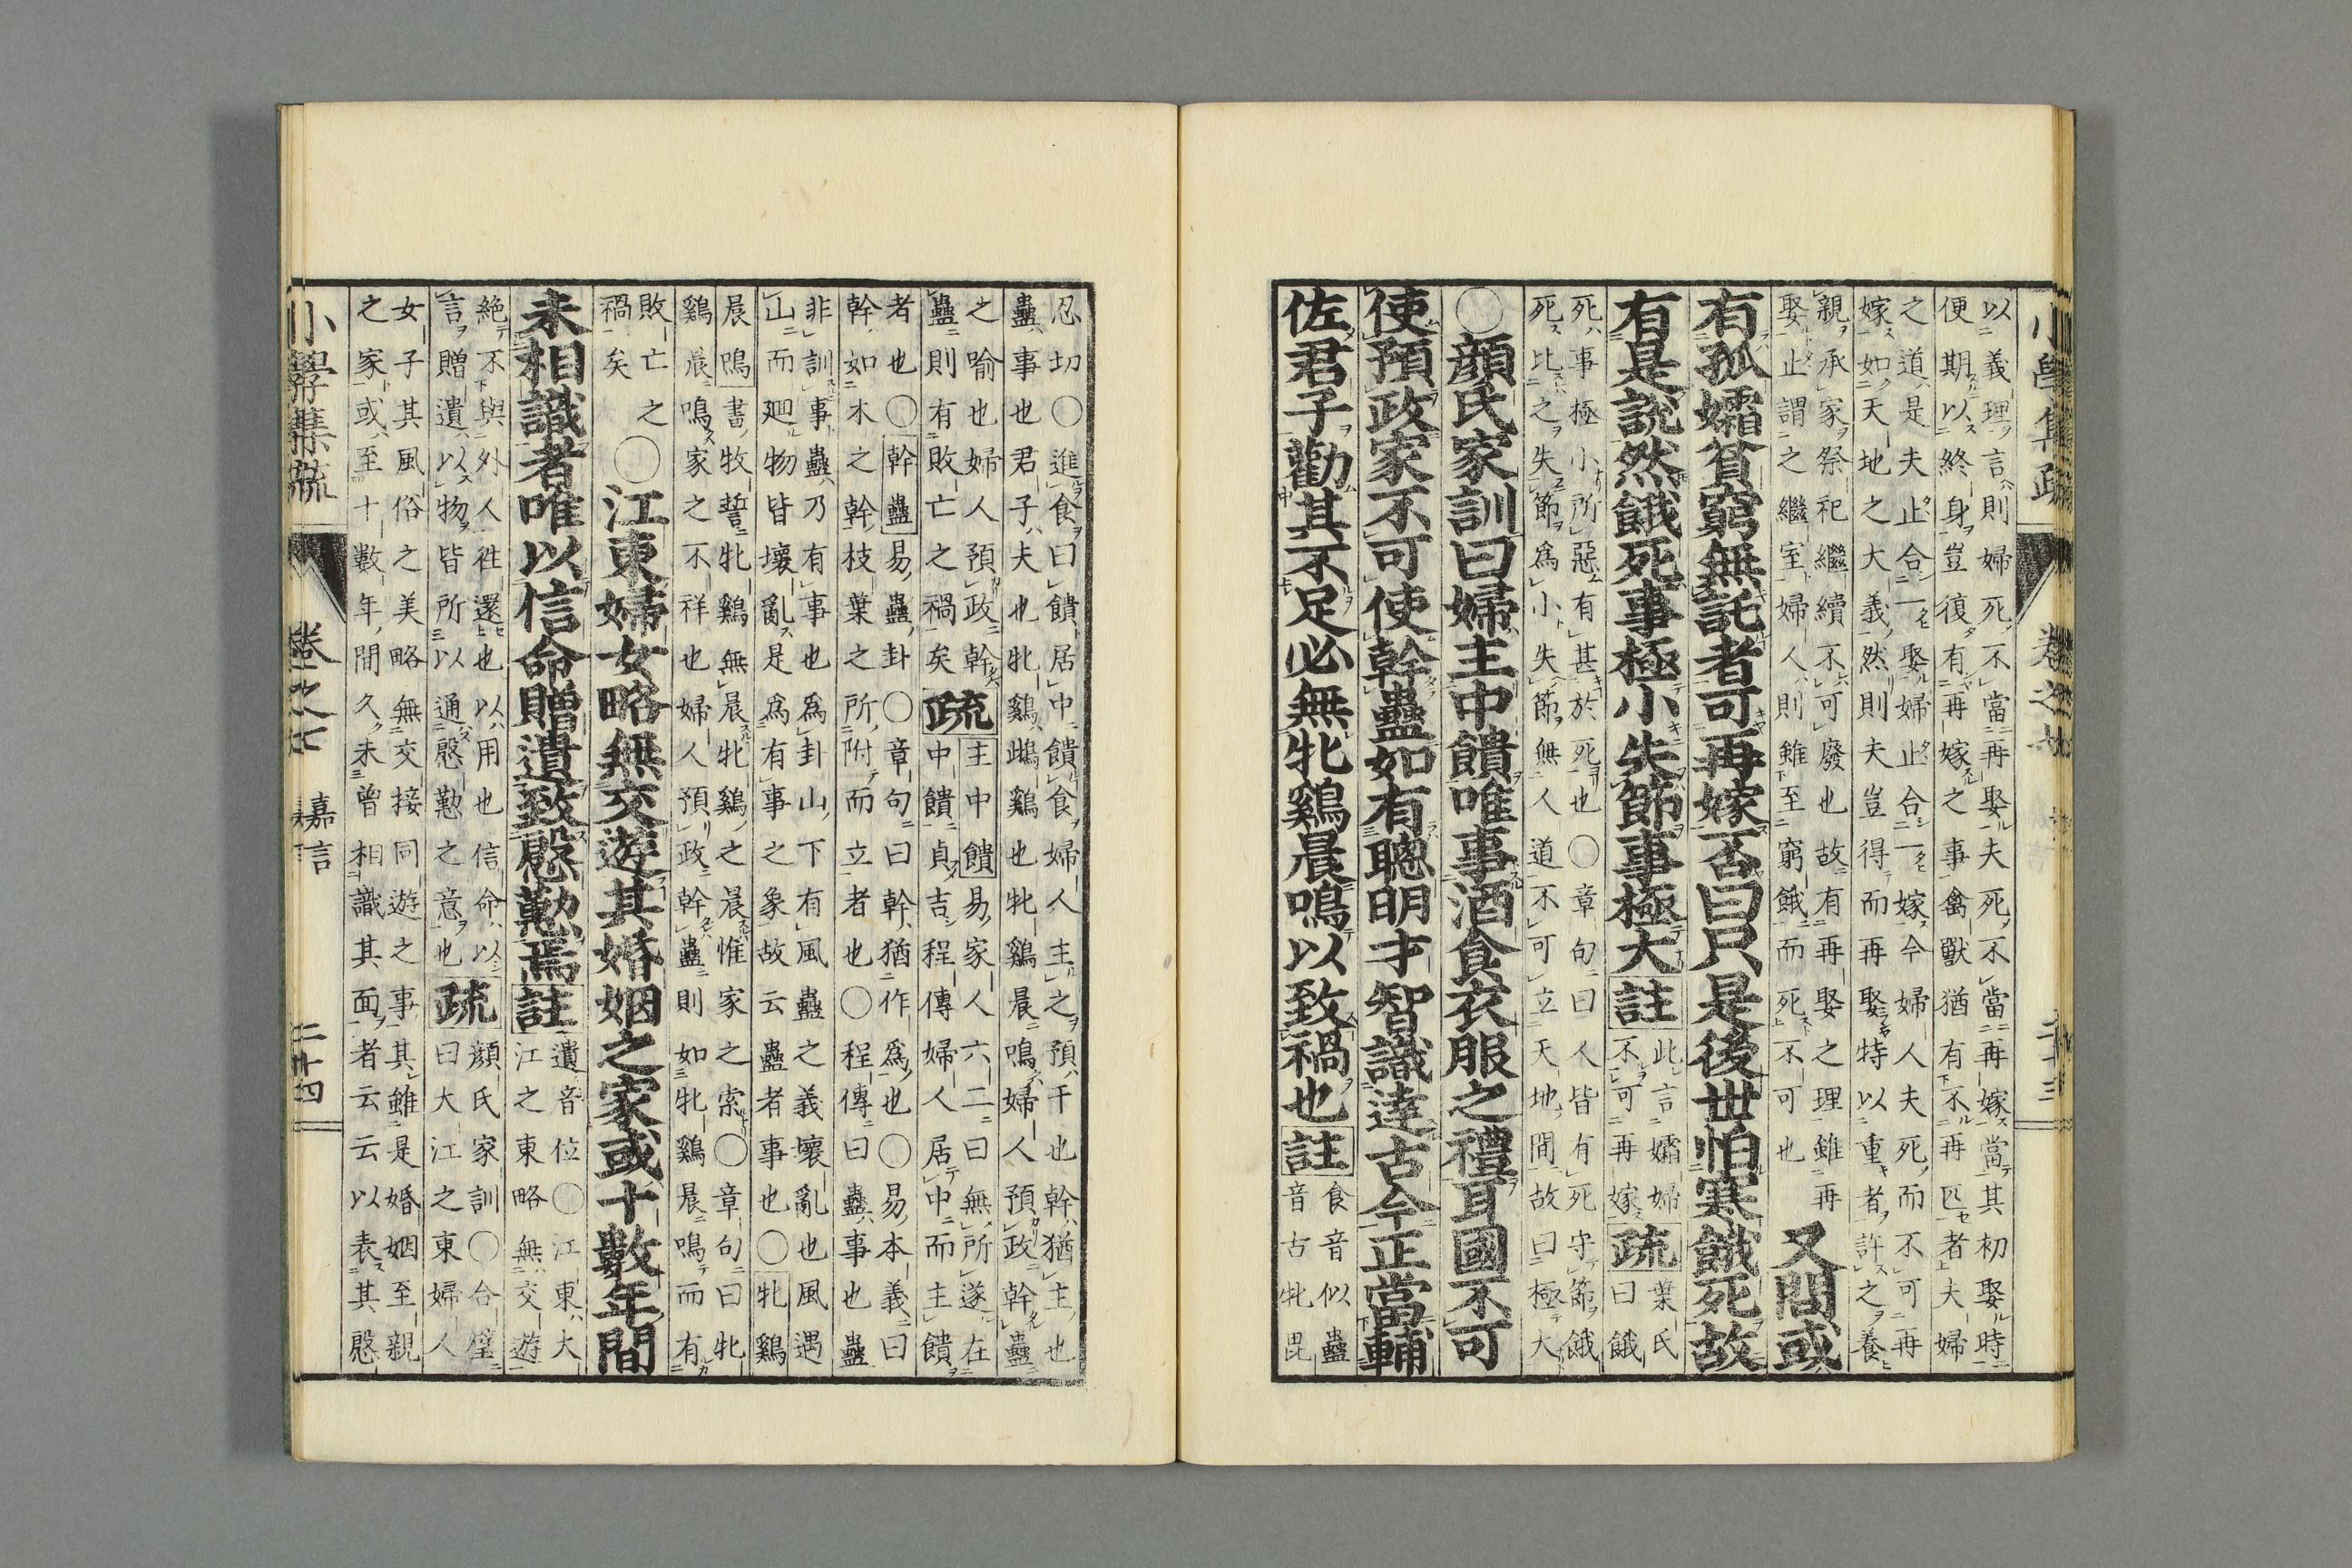 小學集疏 卷之七 二十三
以義理言則婦死不當再娶夫死不當再嫁當其初娶時
便期以終身豈復有再嫁之事禽獸猶有不再匹者夫婦
之道是夫止合一娶婦止合一嫁今婦人夫死而不可再
嫁如天地之大義然則夫豈得而再娶特以重者許之養
親承家祭祀繼續不可廢也故有再娶之理雖再
娶止謂之繼室婦人則雖至窮餓而死不可也
又問或
有孤孀貧窮無託者可再嫁否曰只是後世怕寒餓死故
有是說然餓死事極小失節事極大註
此言孀婦
不可再嫁
疏
葉氏
曰餓
死事極小所惡有甚於死也○章句曰人皆有死守節餓
死比之失節爲小失節無人道不可立天地間故曰極大
○顏氏家訓曰婦主中饋唯事酒食衣服之禮耳國不可
使預政家不可使幹蠱如有聰明才智識達古今正當輔
佐君子勸其不足必無牝鷄晨鳴以致禍也註
食音似蠱
音古牝毘
忍切○進食曰饋居中饋食婦人主之預干也幹猶主也
蠱事也君子夫也牝鷄鴟鷄也牝鷄晨鳴婦人預政幹蠱
之喻也婦人預政幹
蠱則有敗亡之禍矣
疏
主中饋易家人六二曰無所遂在
中饋貞吉程傳婦人居中而主饋
者也○幹蠱易蠱卦○章句曰幹猶作爲也○易本義曰
幹如木之幹枝葉之所附而立者也○程傳曰蠱事也蠱
非訓事蠱乃有事也爲卦山下有風蠱之義壞亂也風遇
山而廻物皆壞亂是爲有事之象故云蠱者事也○牝鷄
晨鳴書牧誓牝鷄無晨牝鷄之晨惟家之索○章句曰牝
鷄晨鳴家之不祥也婦人預政幹蠱則如牝鷄晨鳴而有
敗亡之
禍矣
○江東婦女略無交遊其婚姻之家或十數年間
未相識者唯以信命贈遺致慇懃焉註
遺音位○江東大
江之東略無交遊
絶不與外人往還也以用也信命以
言贈遺以物皆所以通慇懃之意也
疏
顏氏家訓○合璧
曰大江之東婦人
女子其風俗之美略無交接同遊之事其雖是婚姻至親
之家或至十數年間久未曾相識其面者云云以表其慇
小學集疏 卷之七 嘉言 二十四